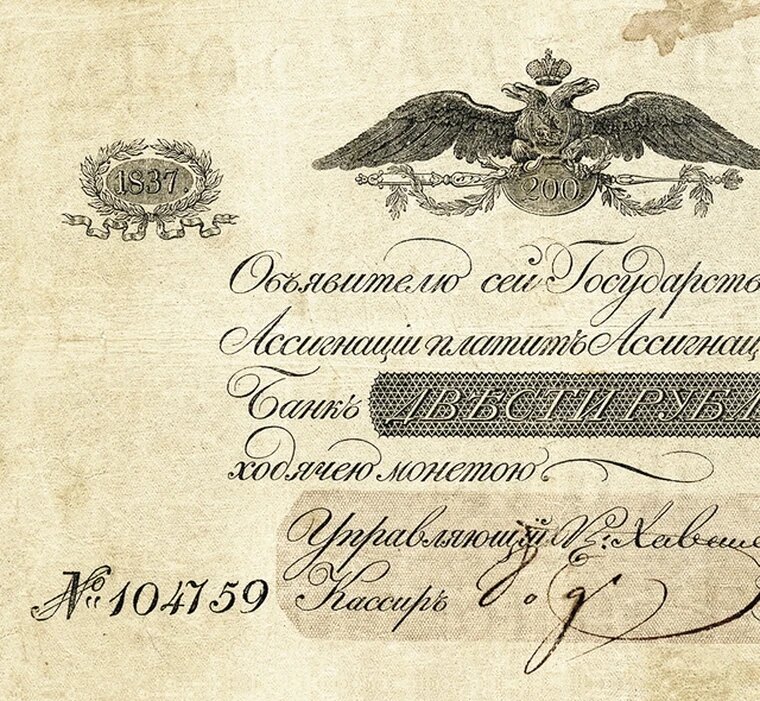 1837.
200
Объявителю сей Государств
Ассигнаціи платитъ Ассигнац
Банкъ ДВѢСТИ РУБЛ
ходячею монетою.
Управляющій
Кассиръ
№ 104759